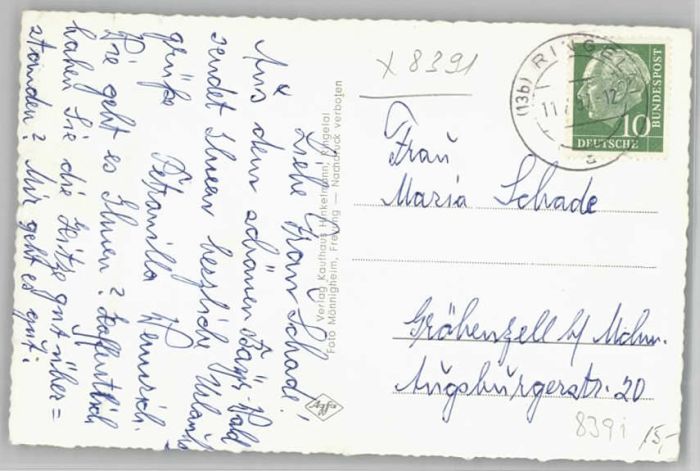 x 8391
(13b) RINGEL
11
12
DEUTSCHE
BUNDESPOST
10
Liebe Frau Schade!
Aus dem schönen Bayr. Wald
sendet Ihnen herzliche Urlaubs
grüße
Petronilla
Wie geht es Ihnen? Hoffentlich
haben Sie die Hitze gut über=
standen? Mir geht es gut!
Verlag Kaufhaus Hinkelmann, Ringelai
Foto Männigheim, Freyung — Nachdruck verboten
Agfa
Frau
Maria Schade
Gröbenzell b/ Mchn.
Augsburgerstr. 20
8391
15,-